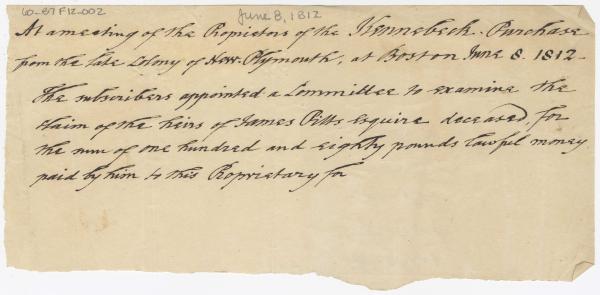 60-87 F12.002
June 8, 1812
At a meeting of the Propietors of the Kennebeck Purchase
from the late Colony of New Plymouth, at Boston June 8. 1812.
The subscribers appointed a Committee to examine the
Claim of the heirs of James Pitts Esquire deceased, for
the sum of one hundred and eighty pounds lawful money
paid by him to this Propriatary for